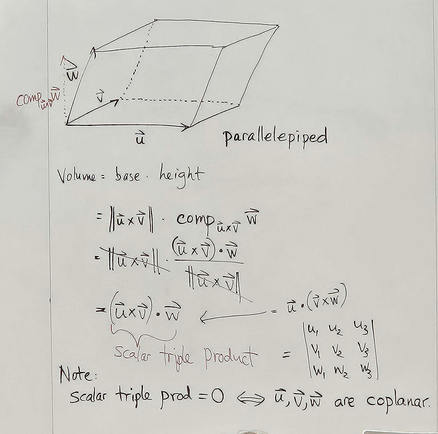 w⃗
comp_{u⃗×v⃗} w⃗
v⃗
u⃗
parallelepiped
Volume = base · height
= ‖u⃗×v⃗‖ · comp_{u⃗×v⃗} w⃗
= ‖u⃗×v⃗‖ · (u⃗×v⃗)·w⃗ / ‖u⃗×v⃗‖
= (u⃗×v⃗)·w⃗ ← = u⃗·(v⃗×w⃗)
scalar triple product = | u₁ u₂ u₃
v₁ v₂ v₃
w₁ w₂ w₃ |
Note:
Scalar triple prod = 0 ⇔ u⃗, v⃗, w⃗ are coplanar.